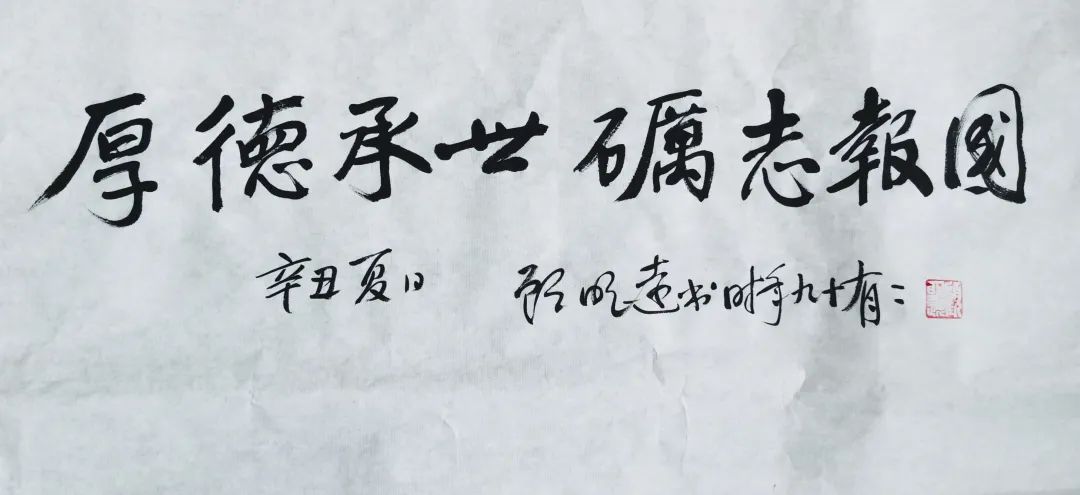 厚德承世 礪志報國
辛丑夏日 顾明远书时年九十有二